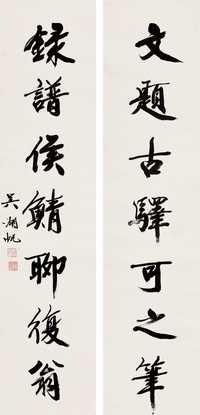 文題古驛可之筆
錄譜侯鯖聊復翁
吳湖帆